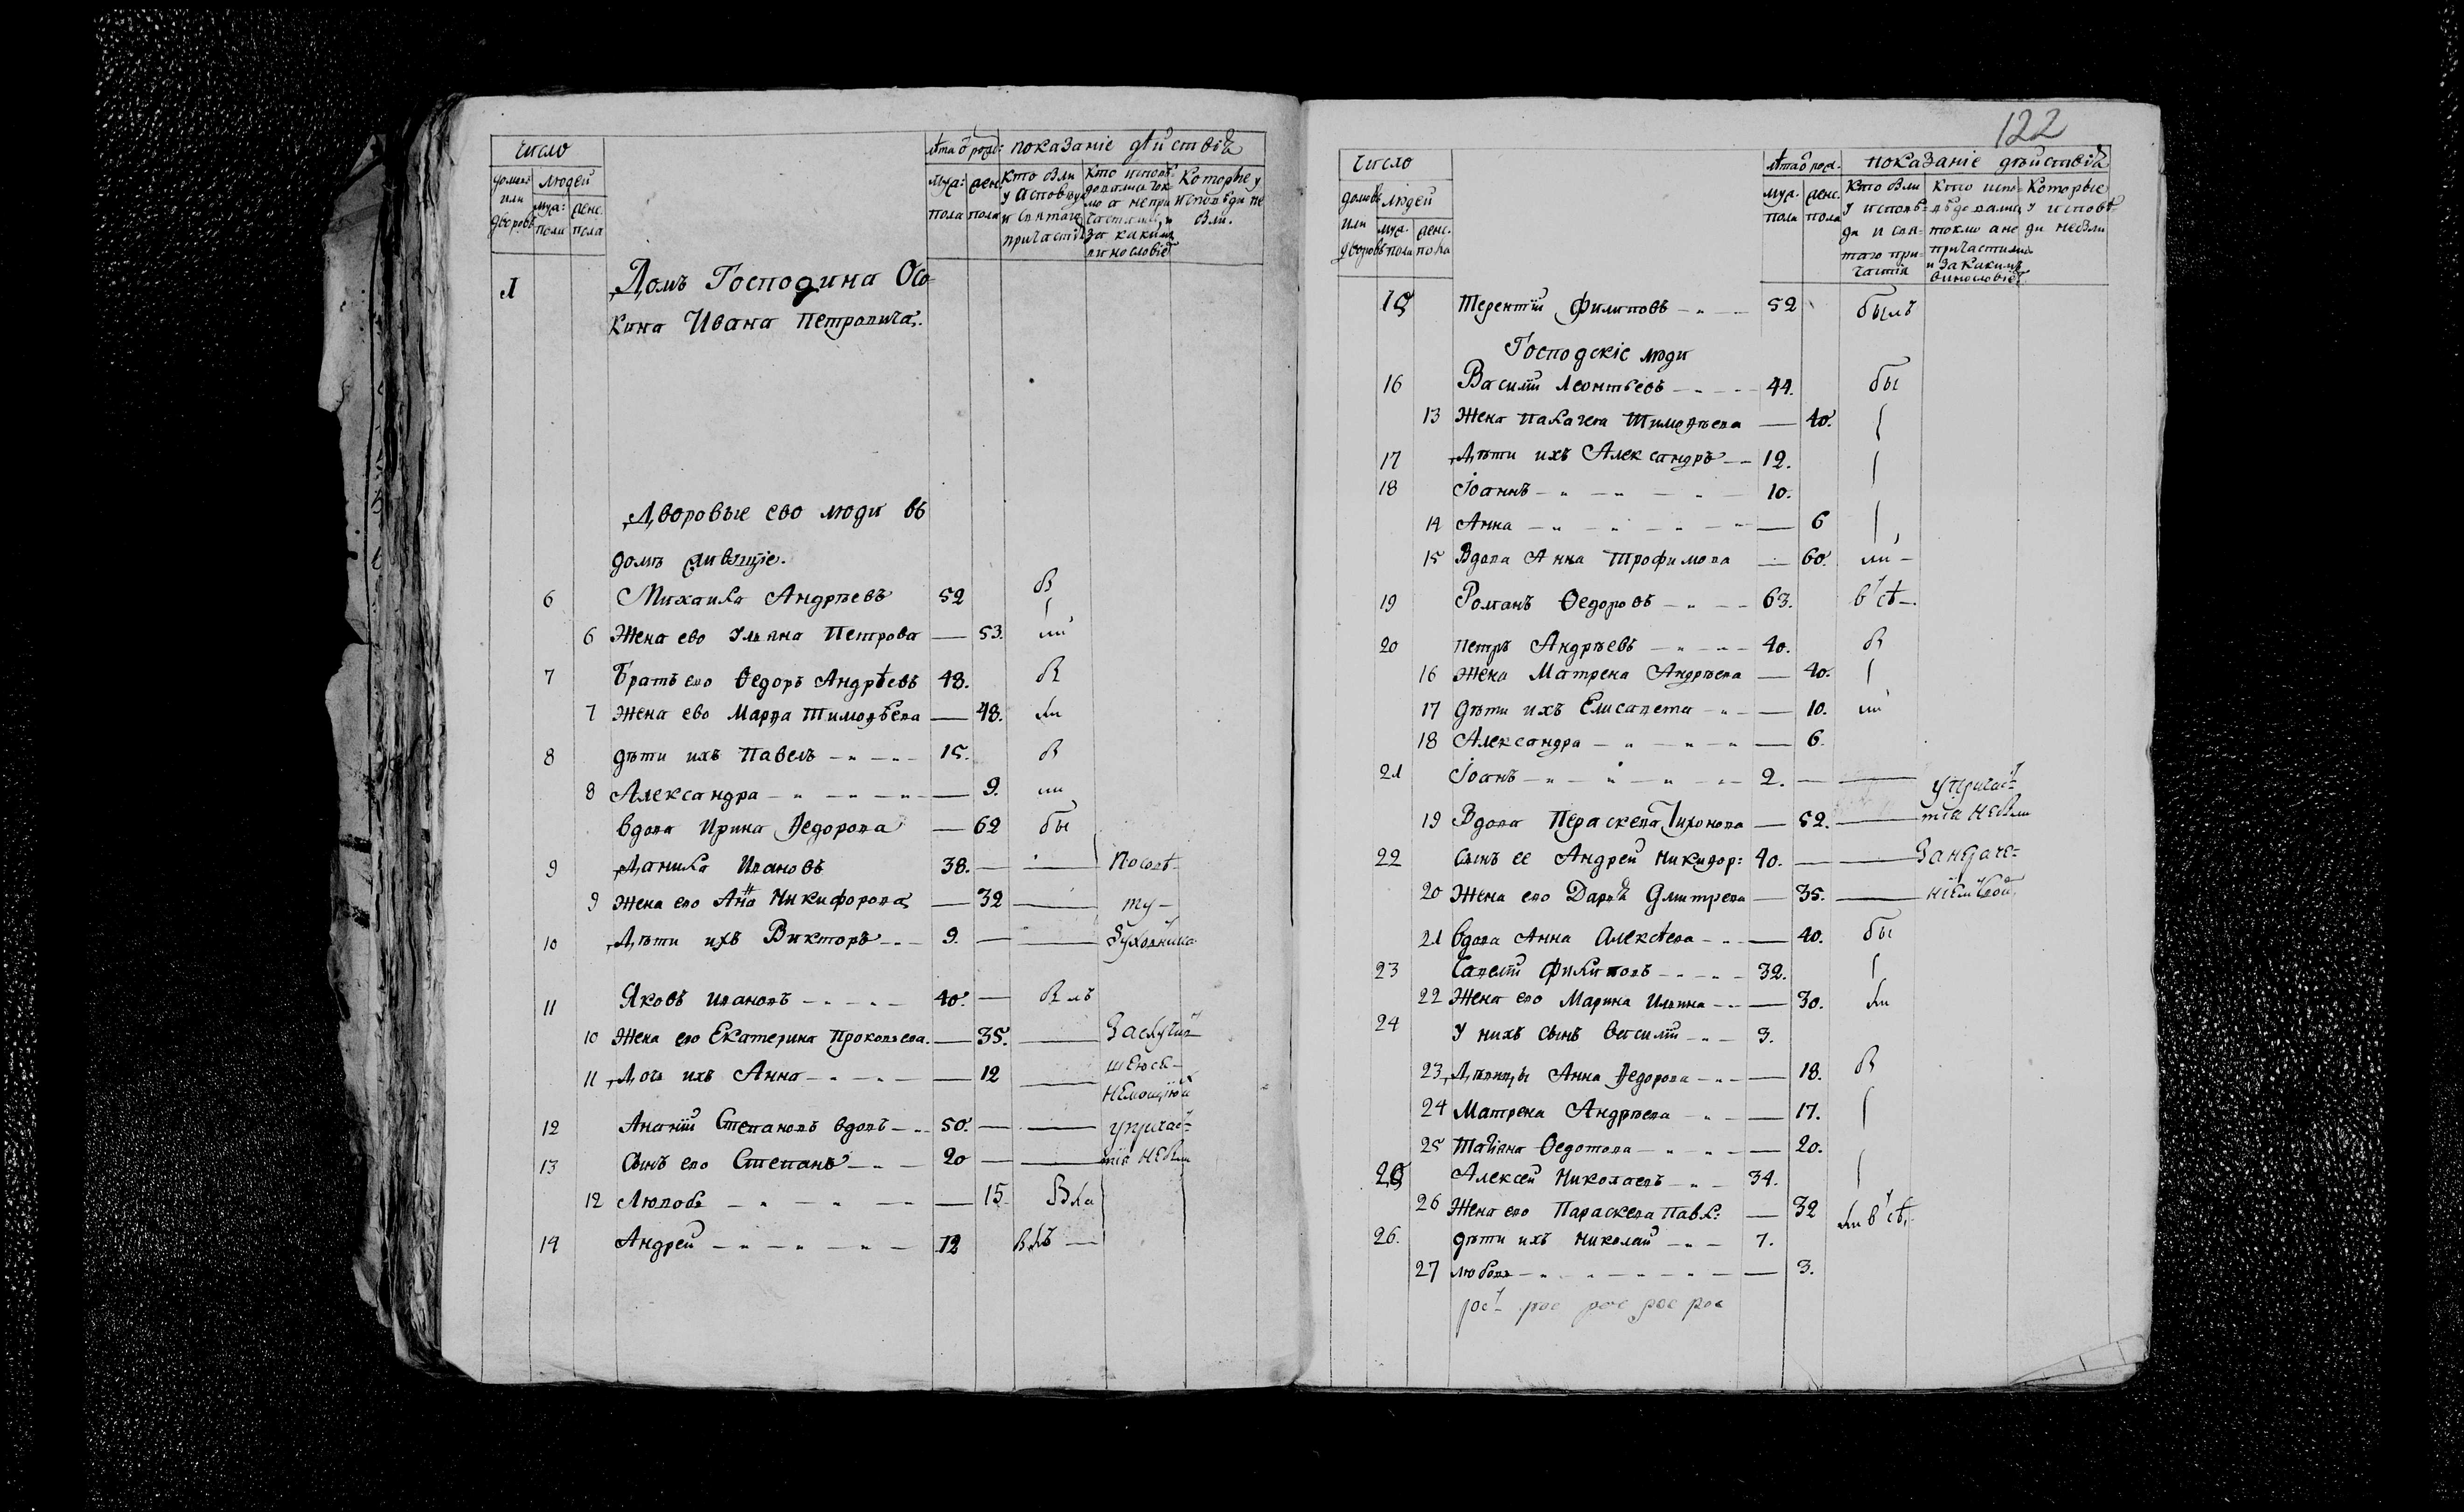 число
лѣта ѿ рожд: показаніе дѣйствій
домовъ или дворовъ
людей
муж: пола
женс. пола
муж: пола
жен. пола
кто были у исповѣди и святаго причастія
кто исповѣдовались токмо а непричастились, и за какимъ винословіем
Которые у исповѣди не были.
1 Домъ Господина Осо-
кина Ивана Петровича.
Дворовые ево люди въ
домѣ живущіе.
6 Михаила Андрѣевъ 52
6 Жена ево Ульяна Петрова — 53. ли
7 Братъ его Ѳедоръ Андрѣевъ 48.
7 Жена ево Марѳа Тимоѳѣева — 48. ли
8 дѣти ихъ Павелъ 15.
8 Александра — 9. ли
вдова Ирина Ѳедорова — 62 бы
9 Данила Ивановъ 38. —
9 Жена его Анна Никифорова — 32 — ту-
10 Дѣти ихъ Викторъ 9. —
11 Яковъ Ивановъ 40. —
10 Жена его Екатерина Прокопьева. — 35. —
11 Дочь ихъ Анна — 12 —
12 Ананій Степановъ вдовъ 50. — — упричас-
13 Сынъ его Степанъ 20 — — тія небыли
12 Любовь — 15. Была
14 Андрей 12 былъ —
122
Число
лѣта ѿ рожд. показаніе дѣйствій
домовъ или дворовъ
людей
муж. пола
женс. пола
муж. пола
женс. пола
Кто были у исповѣди и святаго причастія
Кто исповѣдовались токмо а не причастились и за какимъ винословіем
Которые у исповѣди небыли
15 Терентій Филиповъ 52 былъ
Господскіе люди
16 Василій Леонтьевъ 44. бы
13 Жена Палагея Тимоѳѣева — 40.
17 Дѣти ихъ Александръ 12.
18 Іоаннъ 10.
14 Анна — 6
15 Вдова Анна Трофимова — 60. ли-
19 Романъ Ѳедоровъ 63.
20 Петръ Андрѣевъ 40.
16 Жена Матрена Андрѣева — 40.
17 Дѣти ихъ Елисавета — 10. ли
18 Александра — 6.
21 Іоанъ 2. — — упричас-
19 Вдова Параскева Тихонова — 52. — тія небыли
22 Сынъ ее Андрей Никифор: 40. —
20 Жена его Дарья Дмитрева — 35. —
21 Вдова Анна Алексѣева — 40. бы
23 Савелій Филиповъ 32.
22 Жена его Марина Ильина — 30. ли
24 У нихъ сынъ Василій 3.
23 Дѣвицы Анна Ѳедорова — 18.
24 Матрена Андрѣева — 17.
25 Татіана Ѳедотова — 20.
25 Алексей Николаевъ 34.
26 Жена его Параскева Павл: — 32
26. дѣти ихъ Николай 7.
27 Любовь — 3.
рос рос рос рос рос